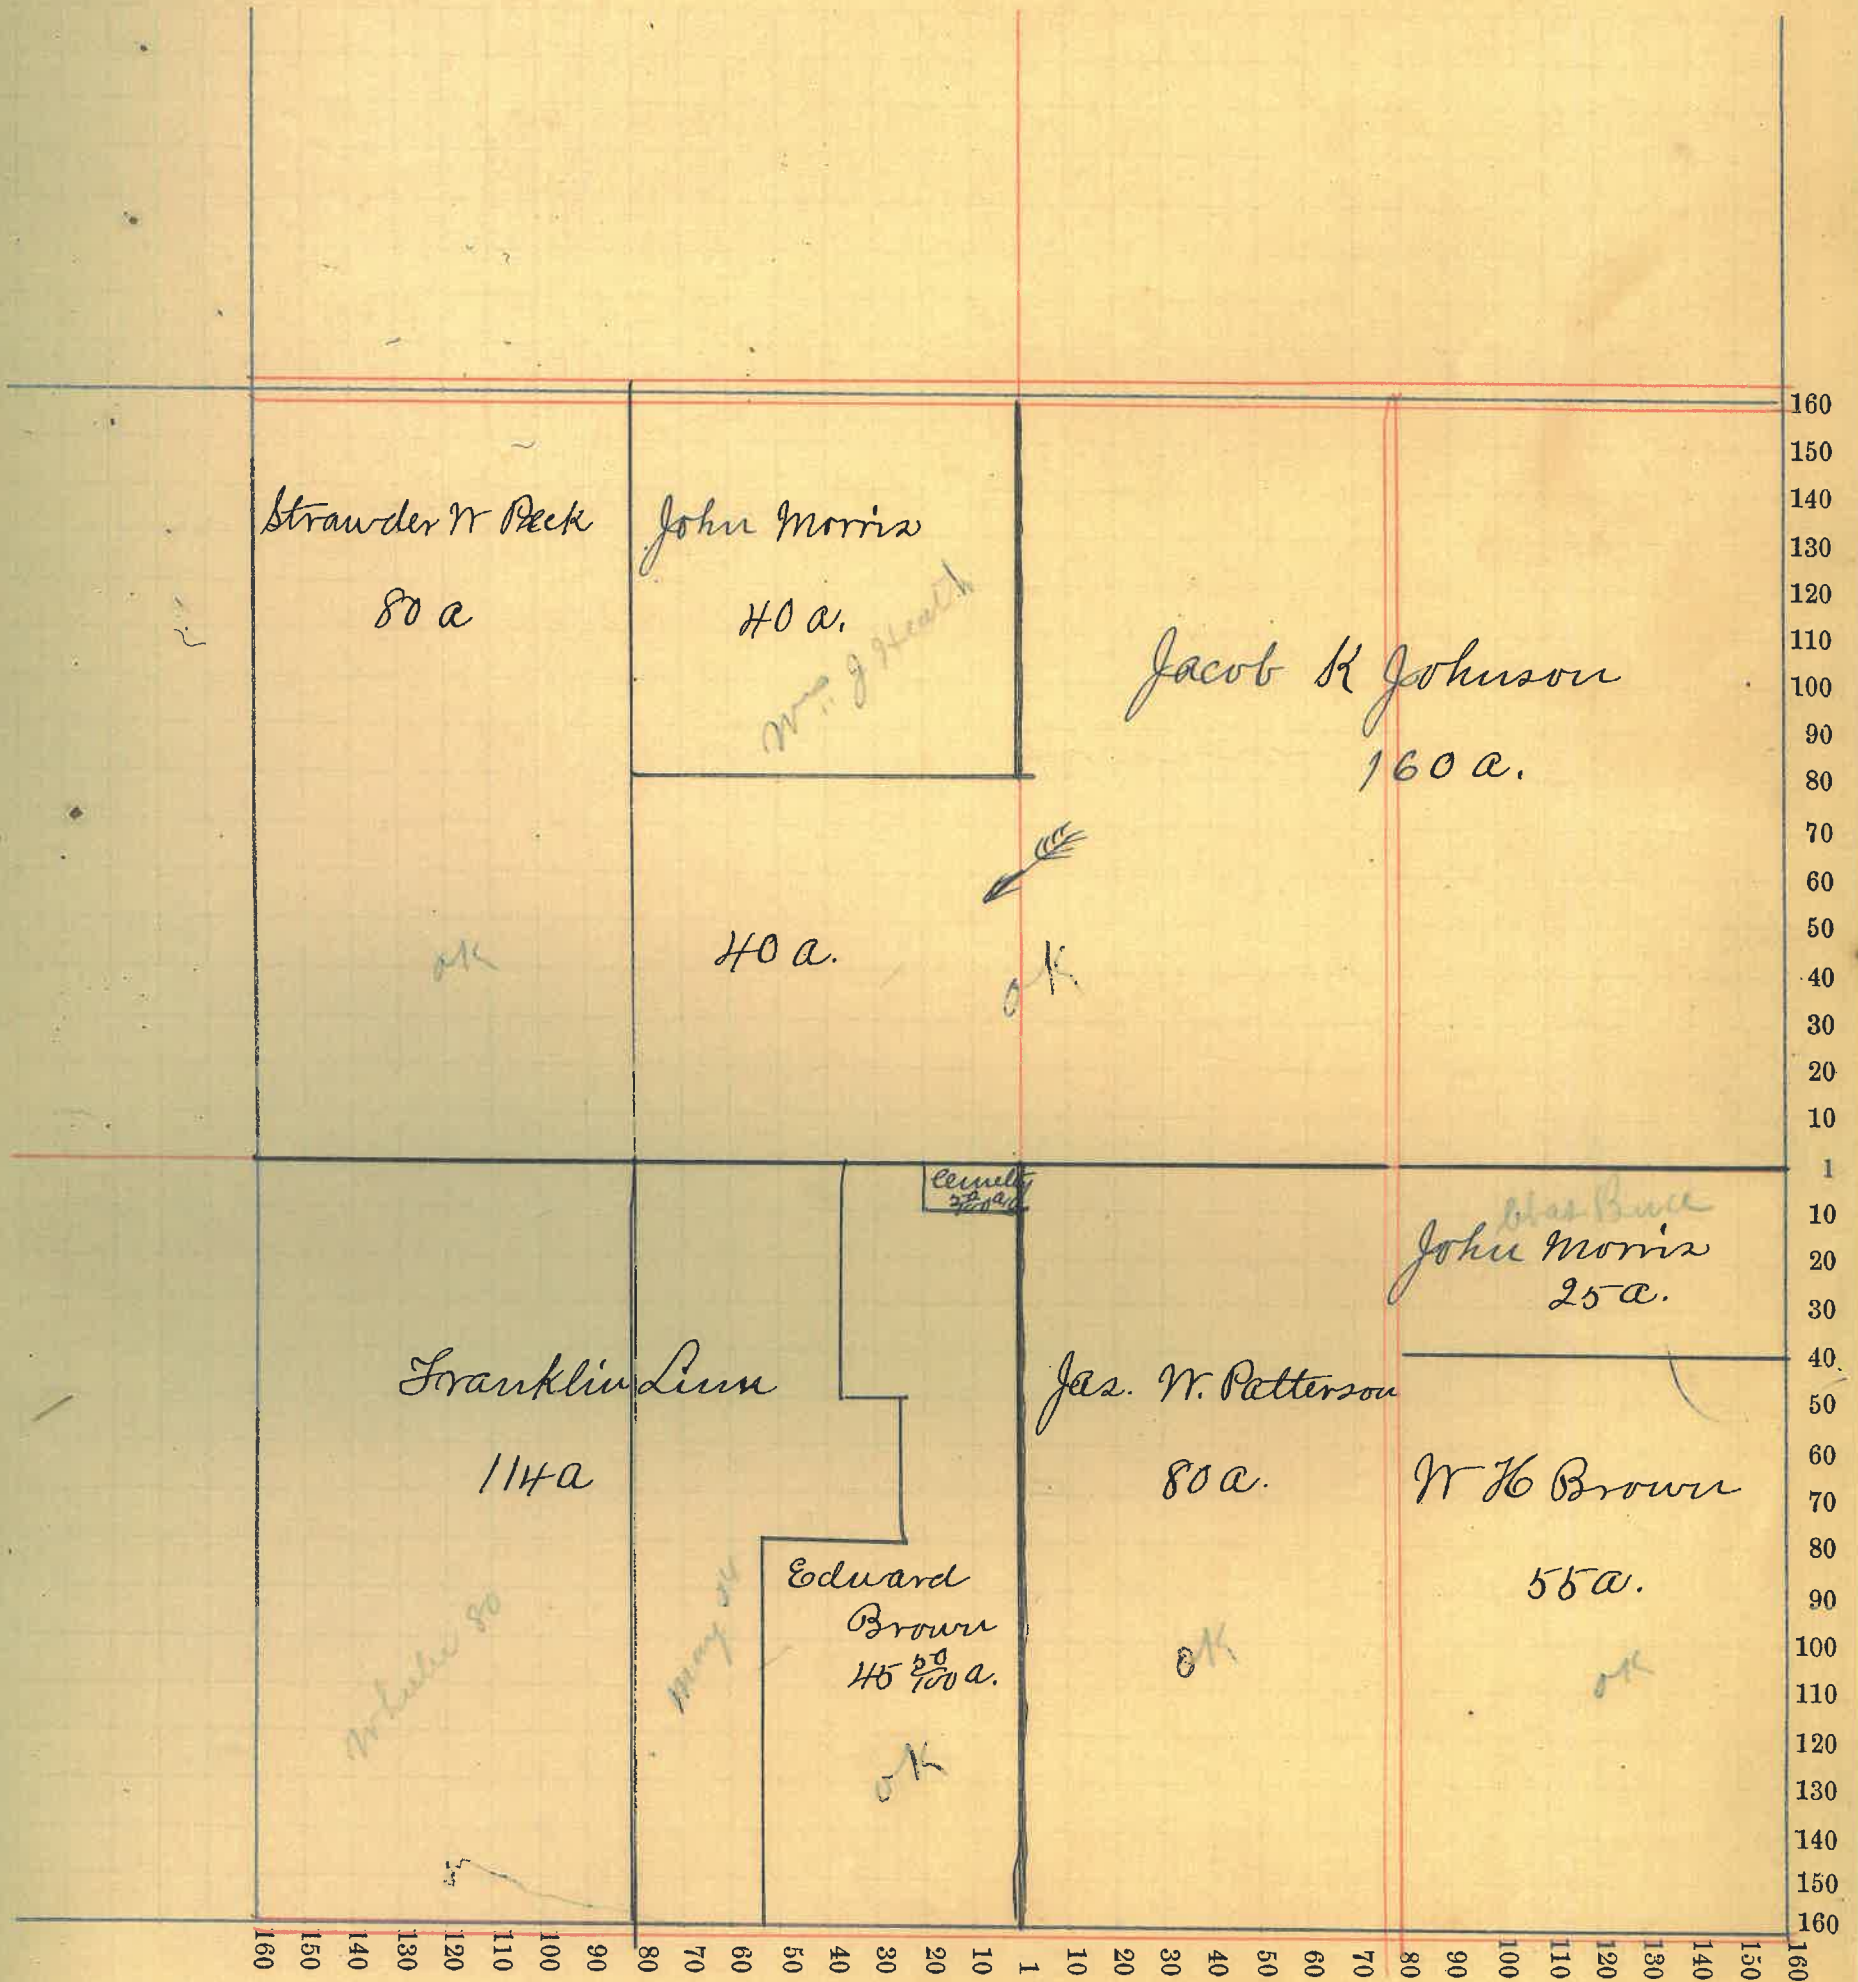 Strawder W Peck
80 a
ok
John Morris
40 a.
Wm J Heath
40 a.
ok
Jacob K Johnson
160 a.
160
150
140
130
120
110
100
90
80
70
60
50
40
30
20
10
1
10
20
30
40
50
60
70
80
90
100
110
120
130
140
150
160
Franklin Linn
114 a
Wheeler 80
May 34
Edward
Brown
45 50/100 a.
ok
Jas. W. Patterson
80 a.
ok
John Morris
25 a.
W H Brown
55 a.
ok
160
150
140
130
120
110
100
90
80
70
60
50
40
30
20
10
1
10
20
30
40
50
60
70
80
90
100
110
120
130
140
150
160